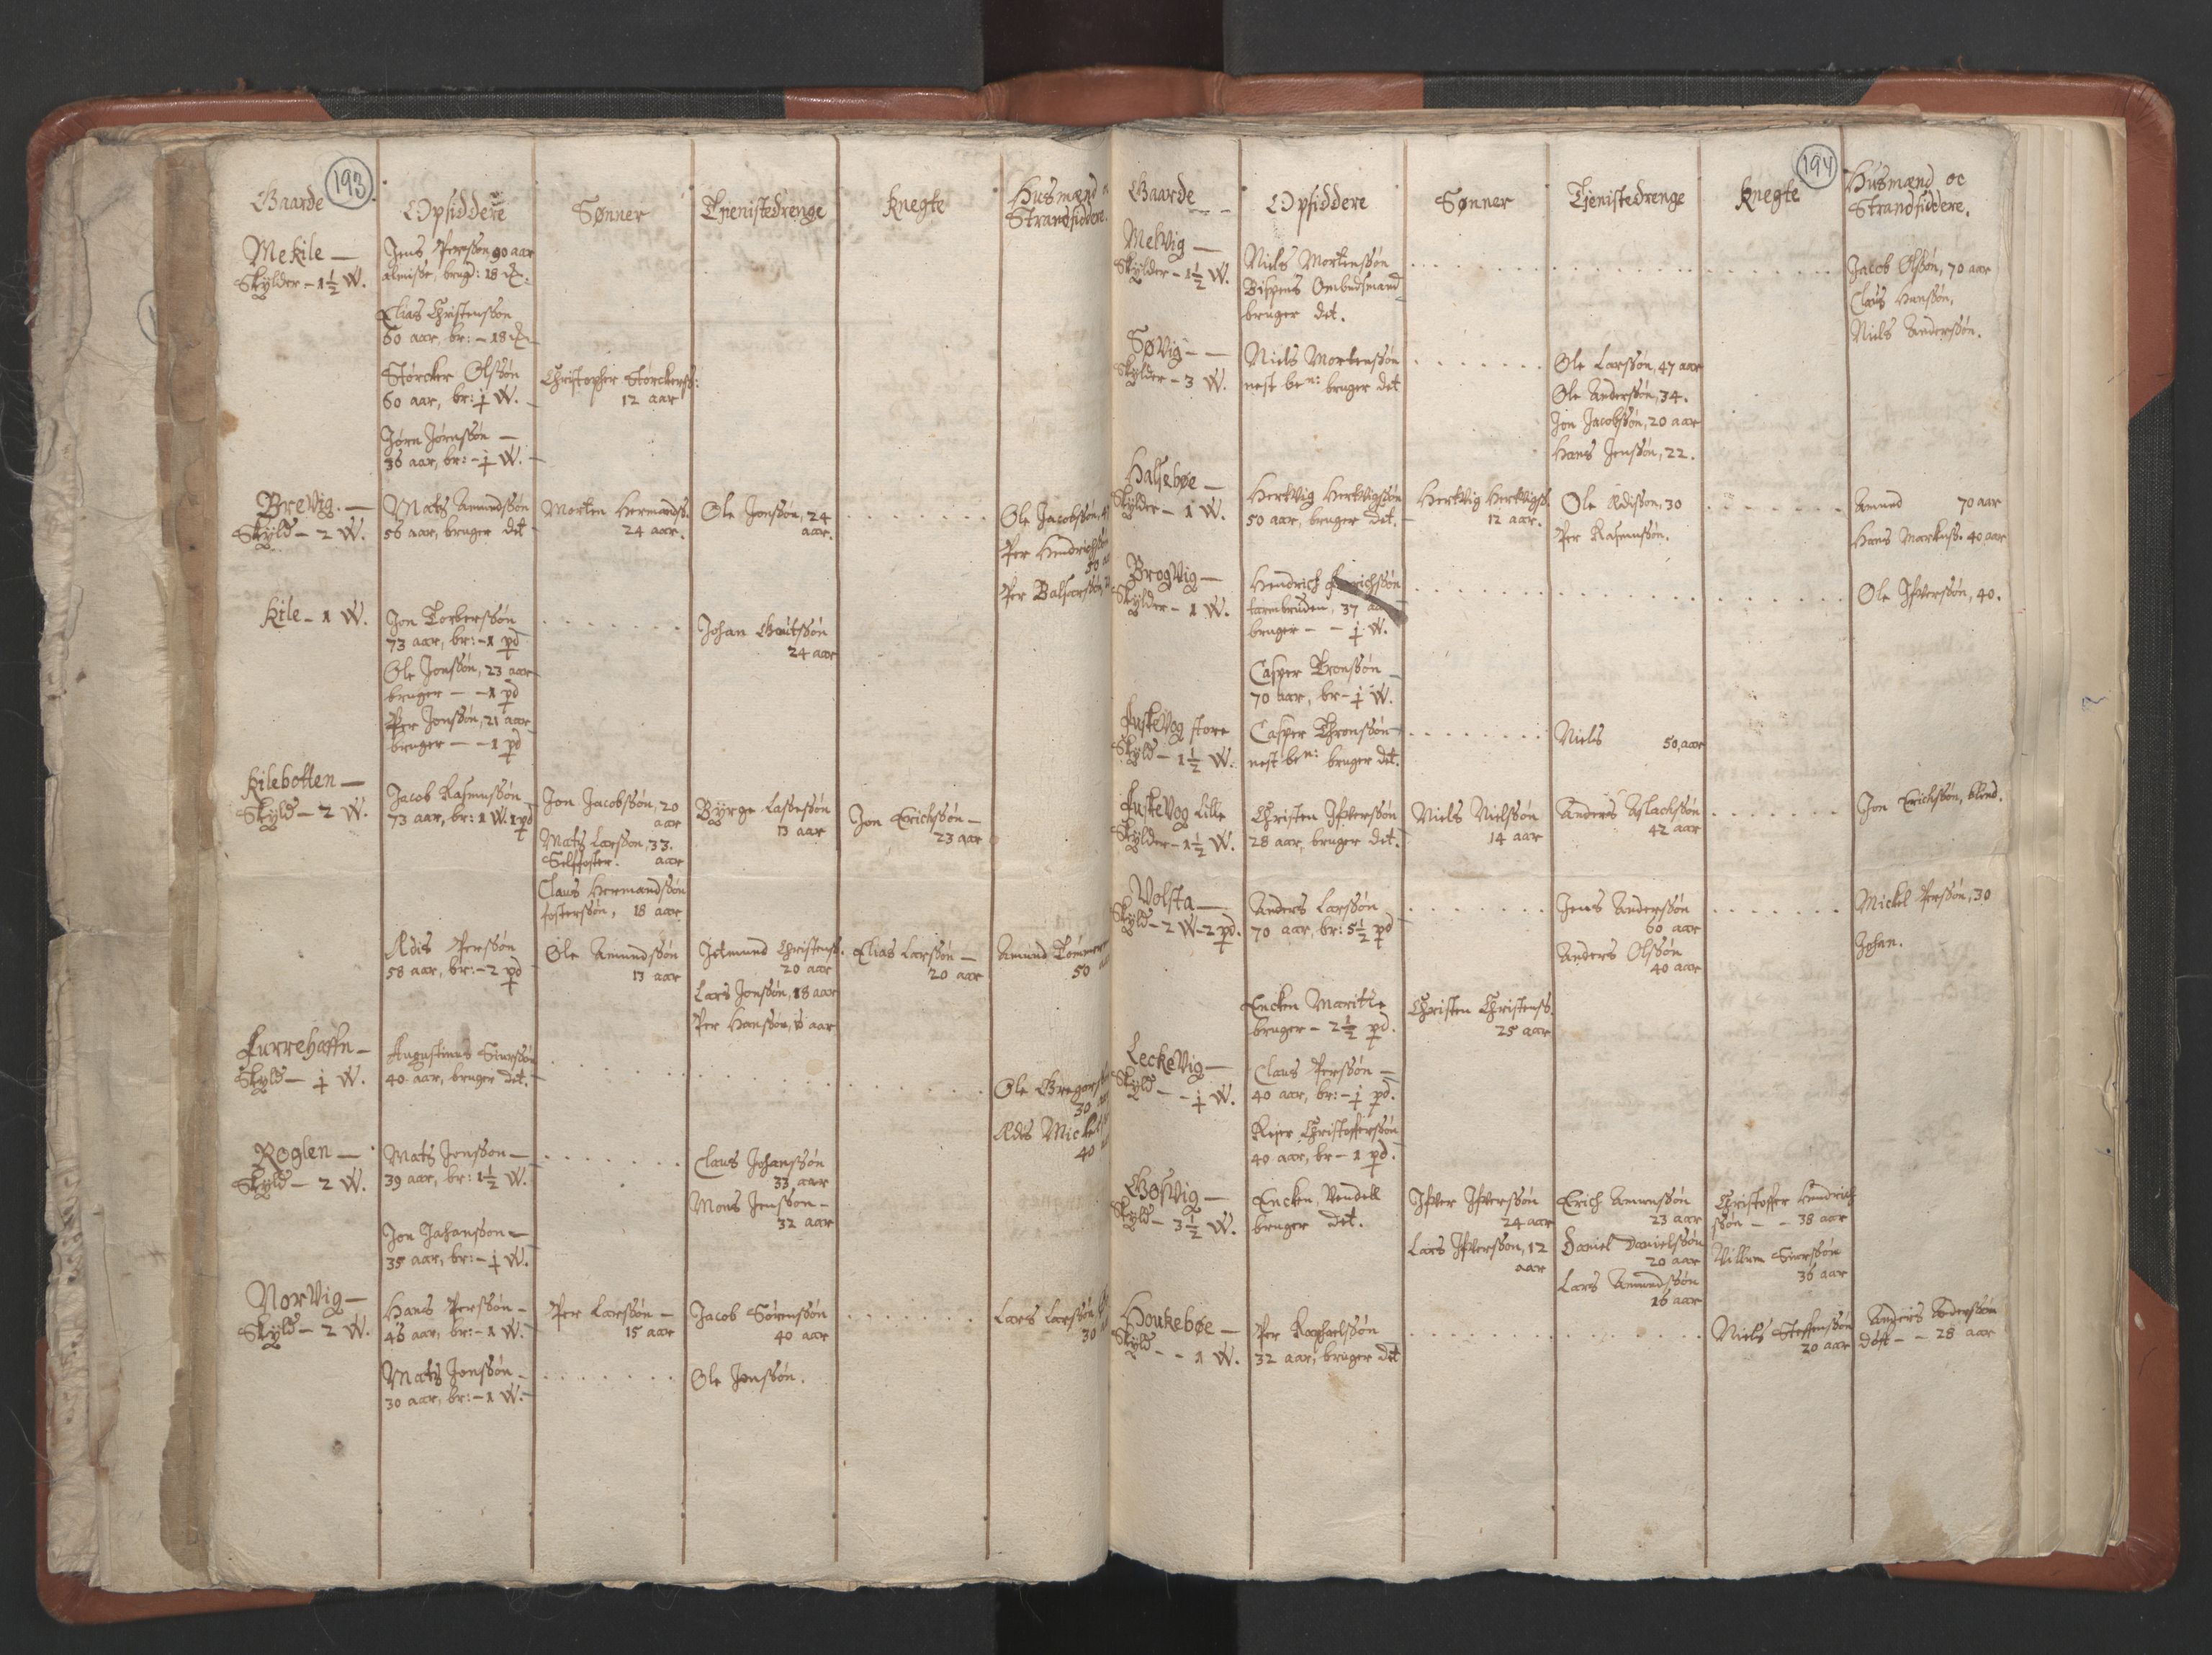 193
Gaarde
Opsiddere
Sønner
Tienistedrenge
Knegte
Husmænd
Strandsiddere.
Mekile —
Skylder - 1½ W.
Jens Perssøn 90 aar
almisse, brug: 18
Elias Christenssøn
60 aar, br: - 18
Størcker Olssøn
60 aar, br: ½ W.
Christopher Størckerss:
12 aar
Jørn Jørnssøn —
36 aar, br: - ½ W.
BreVig. —
Skyld - 2 W.
Mats Amundssøn
56 aar, bruger det
Morten Hermands.
24 aar.
Ole Jonssøn, 24
aar.
Ole Jacobssøn,
Per Hendrichs
50
Per Balsarssøn
Kile - 1 W.
Jon Torberssøn
73 aar, br: - 1 pd
Ole Jonssøn, 23 aar
bruger — - 1 pd
Per Jonssøn, 21 aar
bruger — - 1 pd
Johan Gautssøn
24 aar
Kilebotten —
Skyld - 2 W.
Jacob Rasmussøn
73 aar, br: 1 W. 1 pd
Jon Jacobssøn, 20
aar
Mats Larssøn, 33.
Selffoster. aar
Claus Hermandssøn
fosterssøn, 18 aar
Byrge Lassessøn
13 aar
Jon Erichssøn —
23 aar
Ædis Perssøn
58 aar, br: - 2 pd
Ole Amundssøn
13 aar
Jetmund Christenss.
20 aar
Lars Jonssøn, 18 aar
Per Hanssøn, aar
Elias Larssøn —
20 aar
Amund Tømmer
50
Furrehaffn —
Skyld — ½ W.
Augustinus Siurssøn
40 aar, bruger det.
Ole Gregers
30 aar
Ædis Mickels
40
Roglen —
Skyld — 2 W.
Mats Jonssøn —
39 aar, br: 1½ W.
Claus Johanssøn
33 aar
Mons Jenssøn -
32 aar
Jon Johanssøn —
35 aar, br: - ½ W.
NorVig —
Skyld — 2 W.
Hans Perssøn -
46 aar, br: - 1 W.
Per Larssøn —
15 aar
Jacob Sørenssøn
40 aar
Lars Larssøn
30
Mats Jonssøn -
30 aar, br: - 1 W.
Ole Jonssøn.
194
Gaarde
Opsiddere
Sønner
Tienistedrenge
Knegte
Husmænd oc
Strandsiddere.
MelVig —
Skylder - 1½ W.
Niels Mortenssøn
Bispens Ombudsmand
bruger det.
Jacob Olssøn, 70 aar
Claus Hanssøn,
Niels Anderssøn.
SøVig - —
Skylder - 3 W.
Niels Mortenssøn
nest ben: bruger det
Ole Larssøn, 47 aar
Ole Anderssøn, 34.
Jon Jacobssøn, 20 aar
Hans Jenssøn, 22.
Halsebøe —
Skylder - 1 W.
HerkVig HerkVigssøn
50 aar, bruger det.
HerkVig HerkVigss.
12 aar.
Ole Ædissøn, 30
Per Rasmussøn.
Amund 70 aar
Hans Markuss. 40 aar
BrogVig —
Skylder - 1 W.
Hendrich
tarmbruden, 37 aar
bruger - - ½ W.
Ole Ifverssøn, 40.
Casper Tronssøn —
70 aar, br - ½ W.
FuskeVog store
Skyld - 1½ W.
Casper Thronssøn
nest ben: bruger det.
Niels 50 aar
FuskeVog Lille
Skylder - 1½ W.
Christen Ifverssøn
28 aar, bruger det.
Niels Nielssøn
14 aar
Anders Aslachssøn
42 aar
Jon Erichssøn, blind.
Volsta —
Skyld - 2 W - 2 pd.
Anders Larssøn
70 aar, br: 5½ pd
Jens Anderssøn
60 aar
Anders Olssøn
40 aar
Mickel Perssøn, 30
Johan.
Encken Maritte
bruger - 2½ pd.
Christen Christenss.
25 aar
LeckeVig —
Skyld — - ½ W.
Claus Perssøn —
40 aar, br: - ½ pd.
Reier Christofferssøn
40 aar, br - 1 pd.
GøsVig —
Skyld - 3½ W.
Encken Vendell
bruger det.
Ifver Ifverssøn
24 aar
Lars Ifverssøn, 12
aar
Erich Amundssøn
23 aar
Daniel Danielssøn
20 aar
Lars Amundssøn
16 aar
Christoffer Hendrich
ssøn - - 38 aar
Villum Siurssøn
36 aar
Houkebøe —
Skyld - - 1 W.
Per Raphaelssøn
32 aar, bruger det
Niels Steffenssøn
20 aar
Anders Anderssøn
døff - - 28 aar